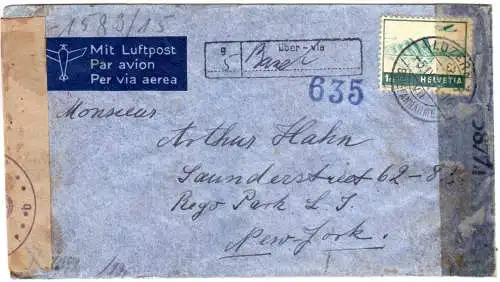 1583/15
Mit Luftpost
Par avion
Per via aerea
über-via
Basel
635
HELVETIA
LUZ
Monsieur
Arthur Hahn
Saunderstreet 62-83
Rego Park L. I.
New-York.
b